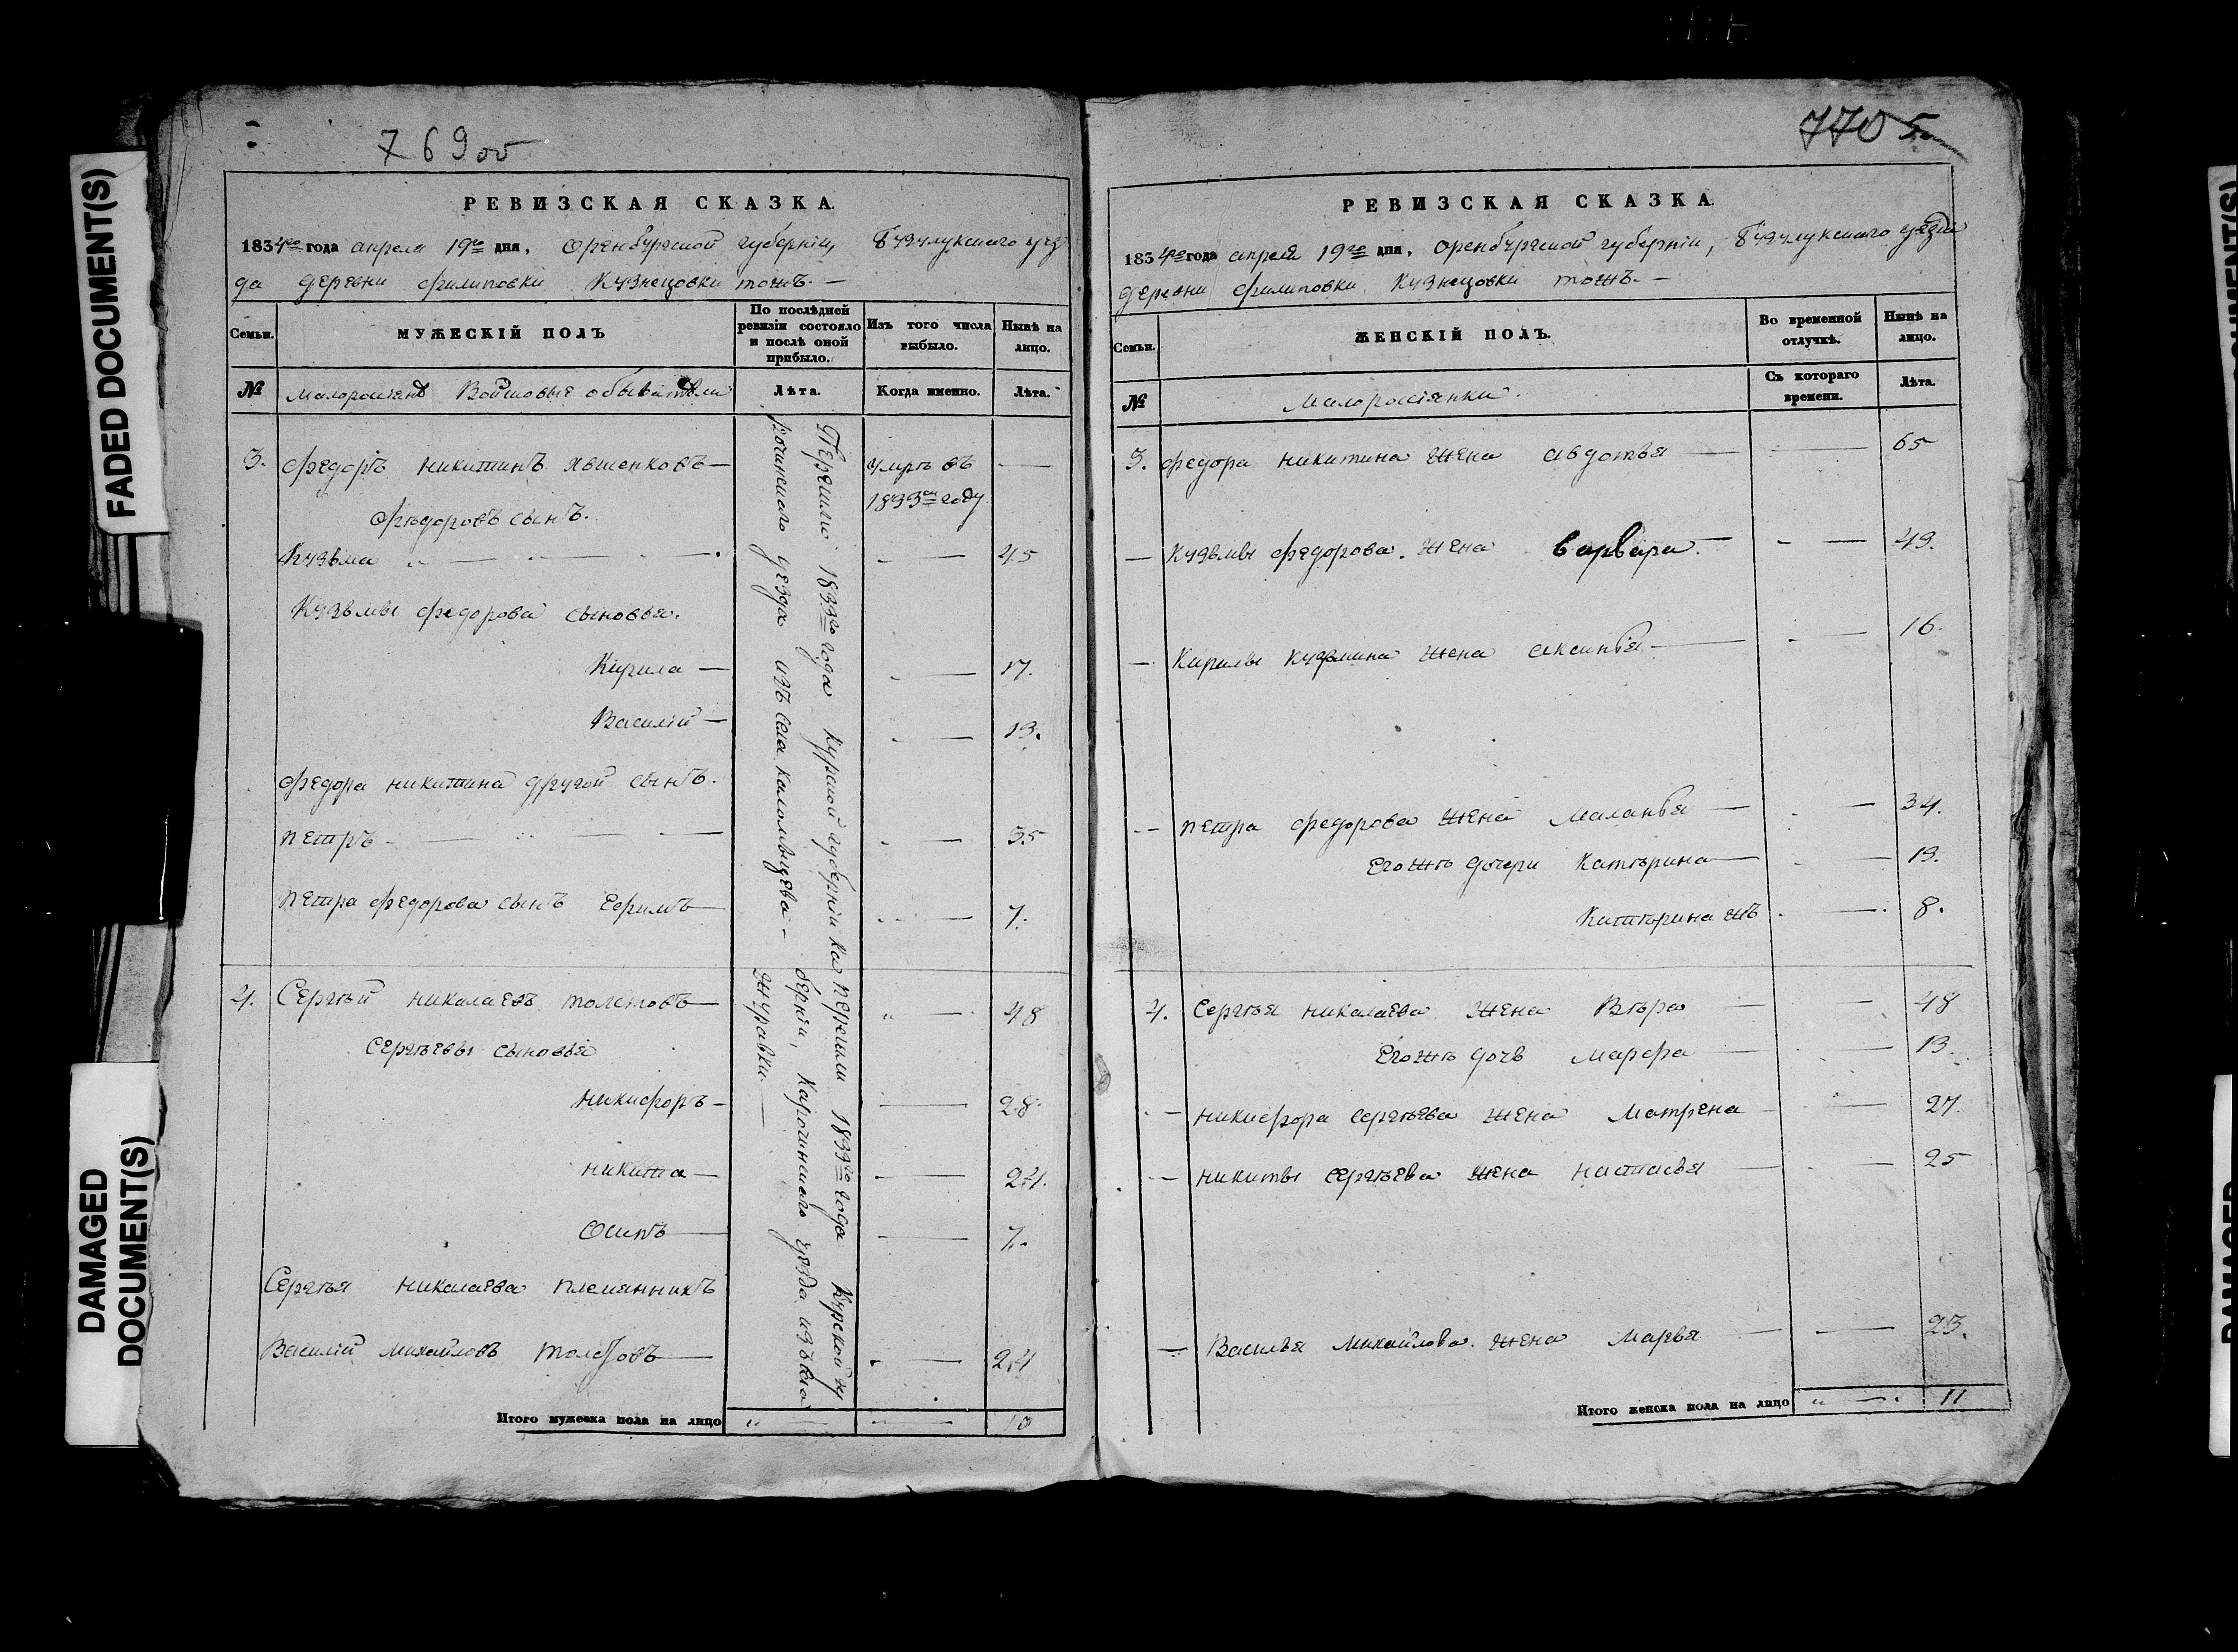 FADED DOCUMENT(S)
DAMAGED
DOCUMENT(S)
769 об
РЕВИЗСКАЯ СКАЗКА.
1834го года апреля 19го дня, Оренбургской губернiи, Бузулукскаго уез
да деревни Филиповки Кузнецовки тожъ.—
Семьи.
МУЖЕСКІЙ ПОЛЪ
По послѣдней
ревизіи состояло
и послѣ оной
прибыло.
Изъ того числа
выбыло.
Нынѣ на
лицо.
№
Войсковые обыватели
Лѣта.
Когда именно.
Лѣта.
3. Федоръ Никитинъ —
умрѣ въ
1833м году
Федоровъ сынъ.
Кузьма — 45
Кузьмы Федорова сыновья.
Кирила — 17.
Василiй — 13.
Федора Никитина другой сынъ.
Петръ — 35
Петра Федорова сынъ Ефимъ — 7.
Перешли 1833го года Курской губернiи Ка
рочинскаго уезда изъ села
4. Сергѣй Николаевъ Толстовъ — 48
Сергѣевы сыновья
Никифоръ — 28.
Никита — 24.
Осипъ — 7.
Сергѣя Николаева племянникъ
Василiй Михайловъ Толстовъ — 24
Перешли 1833го года Курской гу
бернiи, Карочинскаго уезда изъ села
Журавки.—
Итого мужеска пола на лицо 10
770 5
РЕВИЗСКАЯ СКАЗКА.
1834го года апреля 19го дня, Оренбургской губернiи, Бузулукскаго уезда
деревни Филиповки Кузнецовки тожъ.—
Семьи.
ЖЕНСКІЙ ПОЛЪ.
Во временной
отлучкѣ.
Нынѣ на
лицо.
№
Малоросiянки.
Съ котораго
времени.
Лѣта.
3. Федора Никитина жена Авдотья — 65
— Кузьмы Федорова жена Варвара. — 43.
— Кирилы Кузмина жена Аксинья — 16.
— Петра Федорова жена Маланья — 34.
Егожѣ дочери Катѣрина — 13.
Катѣрина жъ — 8.
4. Сергѣя Николаева жена Вѣра — 48
Егожѣ дочь Марфа — 13.
— Никифора Сергѣева жена Матрена — 27.
— Никиты Сергѣева жена Настасья — 25
— Василья Михайлова жена Марья — 23.
Итого женска пола на лицо 11